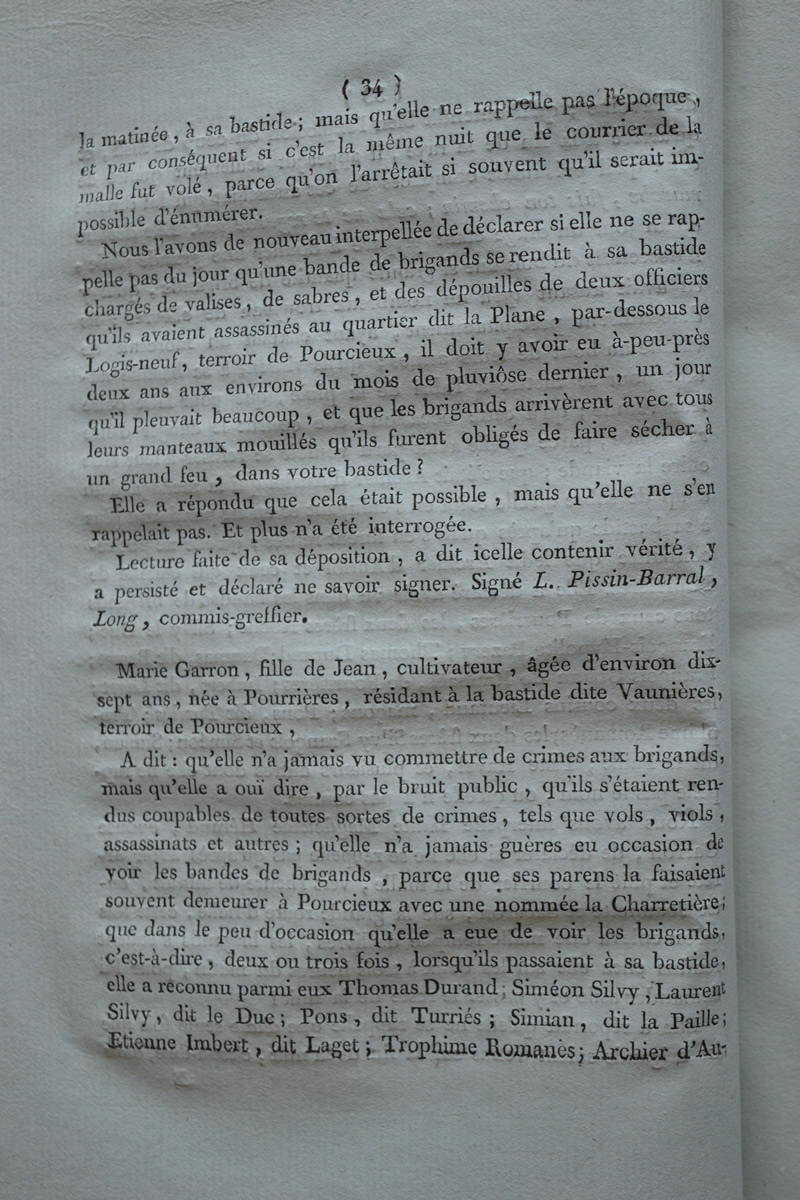 ( 34 )
la matinée, à sa bastide; mais qu'elle ne rappelle pas l'époque,
et par conséquent si c'est la même nuit que le courrier de la
malle fut volé, parce qu'on l'arrêtait si souvent qu'il serait im-
possible d'énumérer.
Nous l'avons de nouveau interpellée de déclarer si elle ne se rap-
pelle pas du jour qu'une bande de brigands se rendit à sa bastide
chargés de valises, de sabres, et des dépouilles de deux officiers
qu'ils avaient assassinés au quartier dit la Plane, par-dessous le
Logis-neuf, terroir de Pourcieux, il doit y avoir eu à-peu-près
deux ans aux environs du mois de pluviôse dernier, un jour
qu'il pleuvait beaucoup, et que les brigands arrivèrent avec tous
leurs manteaux mouillés qu'ils furent obligés de faire sécher à
un grand feu, dans votre bastide ?
Elle a répondu que cela était possible, mais qu'elle ne s'en
rappelait pas. Et plus n'a été interrogée.
Lecture faite de sa déposition, a dit icelle contenir vérité, y
a persisté et déclaré ne savoir signer. Signé L. Pissin-Barral,
Long, commis-greffier.
Marie Garron, fille de Jean, cultivateur, âgée d'environ dix-
sept ans, née à Pourrières, résidant à la bastide dite Vaunières,
terroir de Pourcieux,
A dit : qu'elle n'a jamais vu commettre de crimes aux brigands,
mais qu'elle a ouï dire, par le bruit public, qu'ils s'étaient ren-
dus coupables de toutes sortes de crimes, tels que vols, viols,
assassinats et autres; qu'elle n'a jamais guères eu occasion de
voir les bandes de brigands, parce que ses parens la faisaient
souvent demeurer à Pourcieux avec une nommée la Charretière;
que dans le peu d'occasion qu'elle a eue de voir les brigands,
c'est-à-dire, deux ou trois fois, lorsqu'ils passaient à sa bastide,
elle a reconnu parmi eux Thomas Durand; Siméon Silvy, Laurent
Silvy, dit le Duc; Pons, dit Turriés; Simian, dit la Paille;
Etienne Imbert, dit Laget; Trophime Romanès; Archier d'Au-